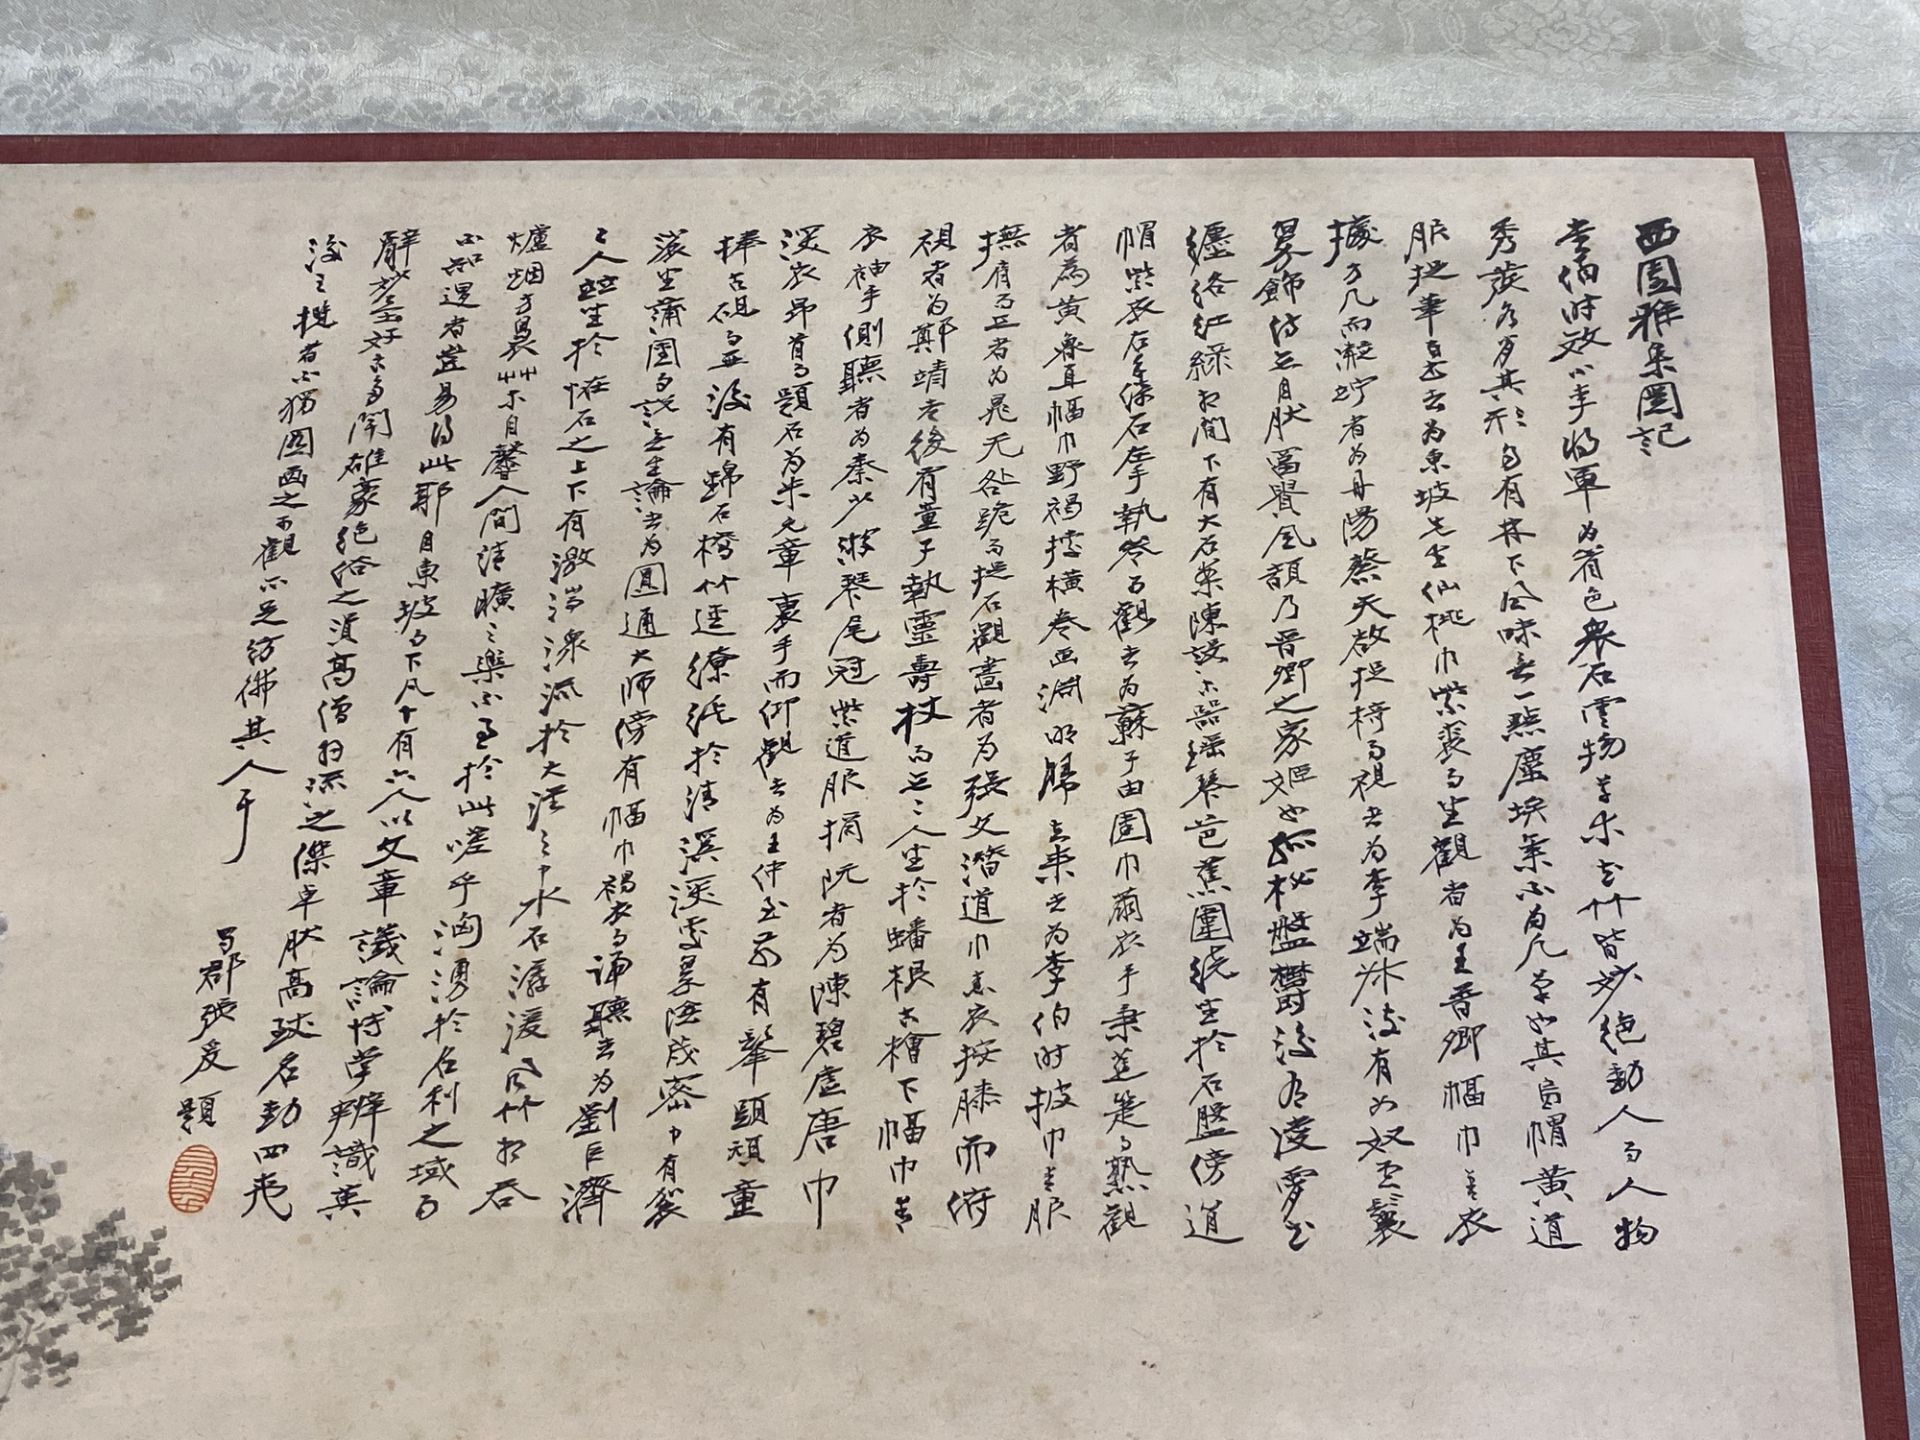 西園雅集圖記
李伯時效小李將軍為着色泉石雲物草木花竹皆妙絕動人而人物
秀發各肖其形自有林下風味無一點塵埃氣不為凡筆也其烏帽黃道
服捉筆而書者為東坡先生仙桃巾紫裘而坐觀者為王晉卿幅巾青衣
據方几而凝竚者為丹陽蔡天啟捉椅而視者為李端叔後有女奴雲鬟
翠飾侍立自然富貴風韻乃晉卿之家姬也孤松盤鬱後有凌霄
纏絡紅綠相間下有大石案陳設古器瑤琴芭蕉圍繞坐於石盤傍道
帽紫衣右手倚石左手執卷而觀書者為蘇子由團巾繭衣手秉蕉箑而熟觀
者為黃魯直幅巾野褐據橫卷画淵明歸去來者為李伯時披巾青服
撫肩而立者為晁无咎跪而捉石觀畫者為張文潛道巾素衣按膝而俯
視者為鄭靖老後有童子執靈壽杖而立二人坐於蟠根古檜下幅巾青
衣袖手側聽者為秦少游琴尾冠紫道服摘阮者為陳碧虛唐巾
深衣昂首而題石為米元章裹手而仰觀者為王仲至前有髼頭頑童
捧古硯而立後有錦石橋竹逕繚繞於清溪深處翠陰茂密中有袈
裟坐蒲團而說無生論者為圓通大師傍有幅巾褐衣而諦聽者為劉巨濟
二人竝坐於怪石之上下有激湍潨流於大溪之中水石潺湲風竹相吞
爐烟方裊艸木自馨人間清曠之樂不過於此嗟乎洶湧於名利之域而
不知退者豈易得此耶自東坡而下凡十有六人以文章議論博學辨識英
辭妙墨好古多聞雄豪絕俗之資高僧羽流之傑卓然高致名動四夷
後之攬者不獨圖画之可觀亦足彷彿其人耳
蜀郡張爰題